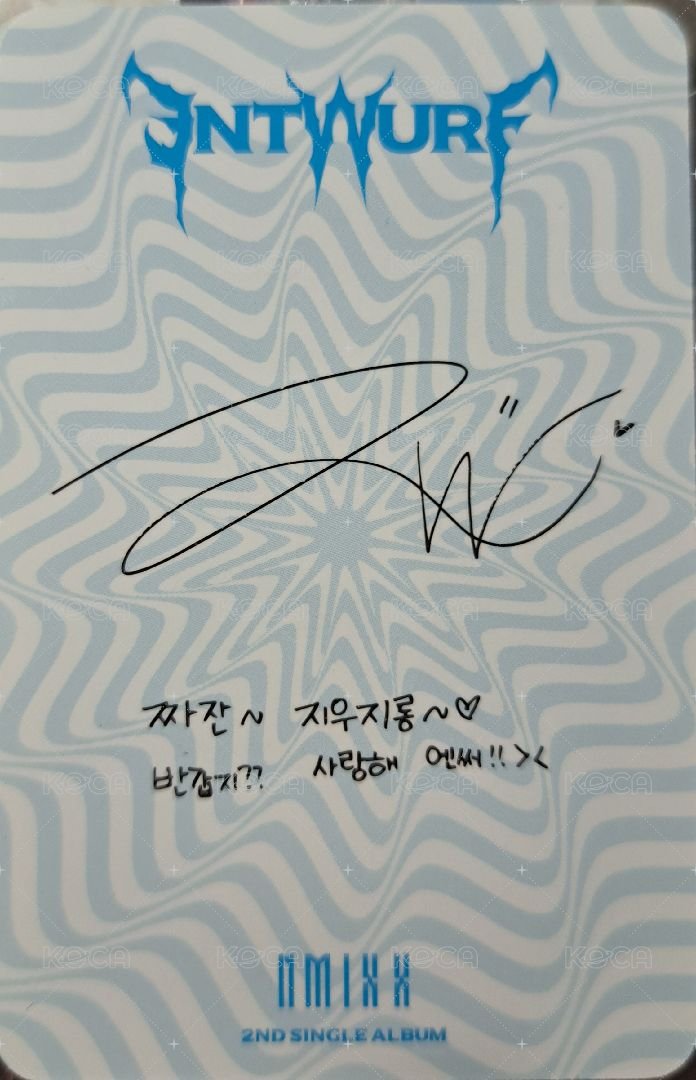 ENTWURF
짜잔~ 지우지롱~♡
반갑지?? 사랑해 엔써!! ><
NMIXX
2ND SINGLE ALBUM
KOCA